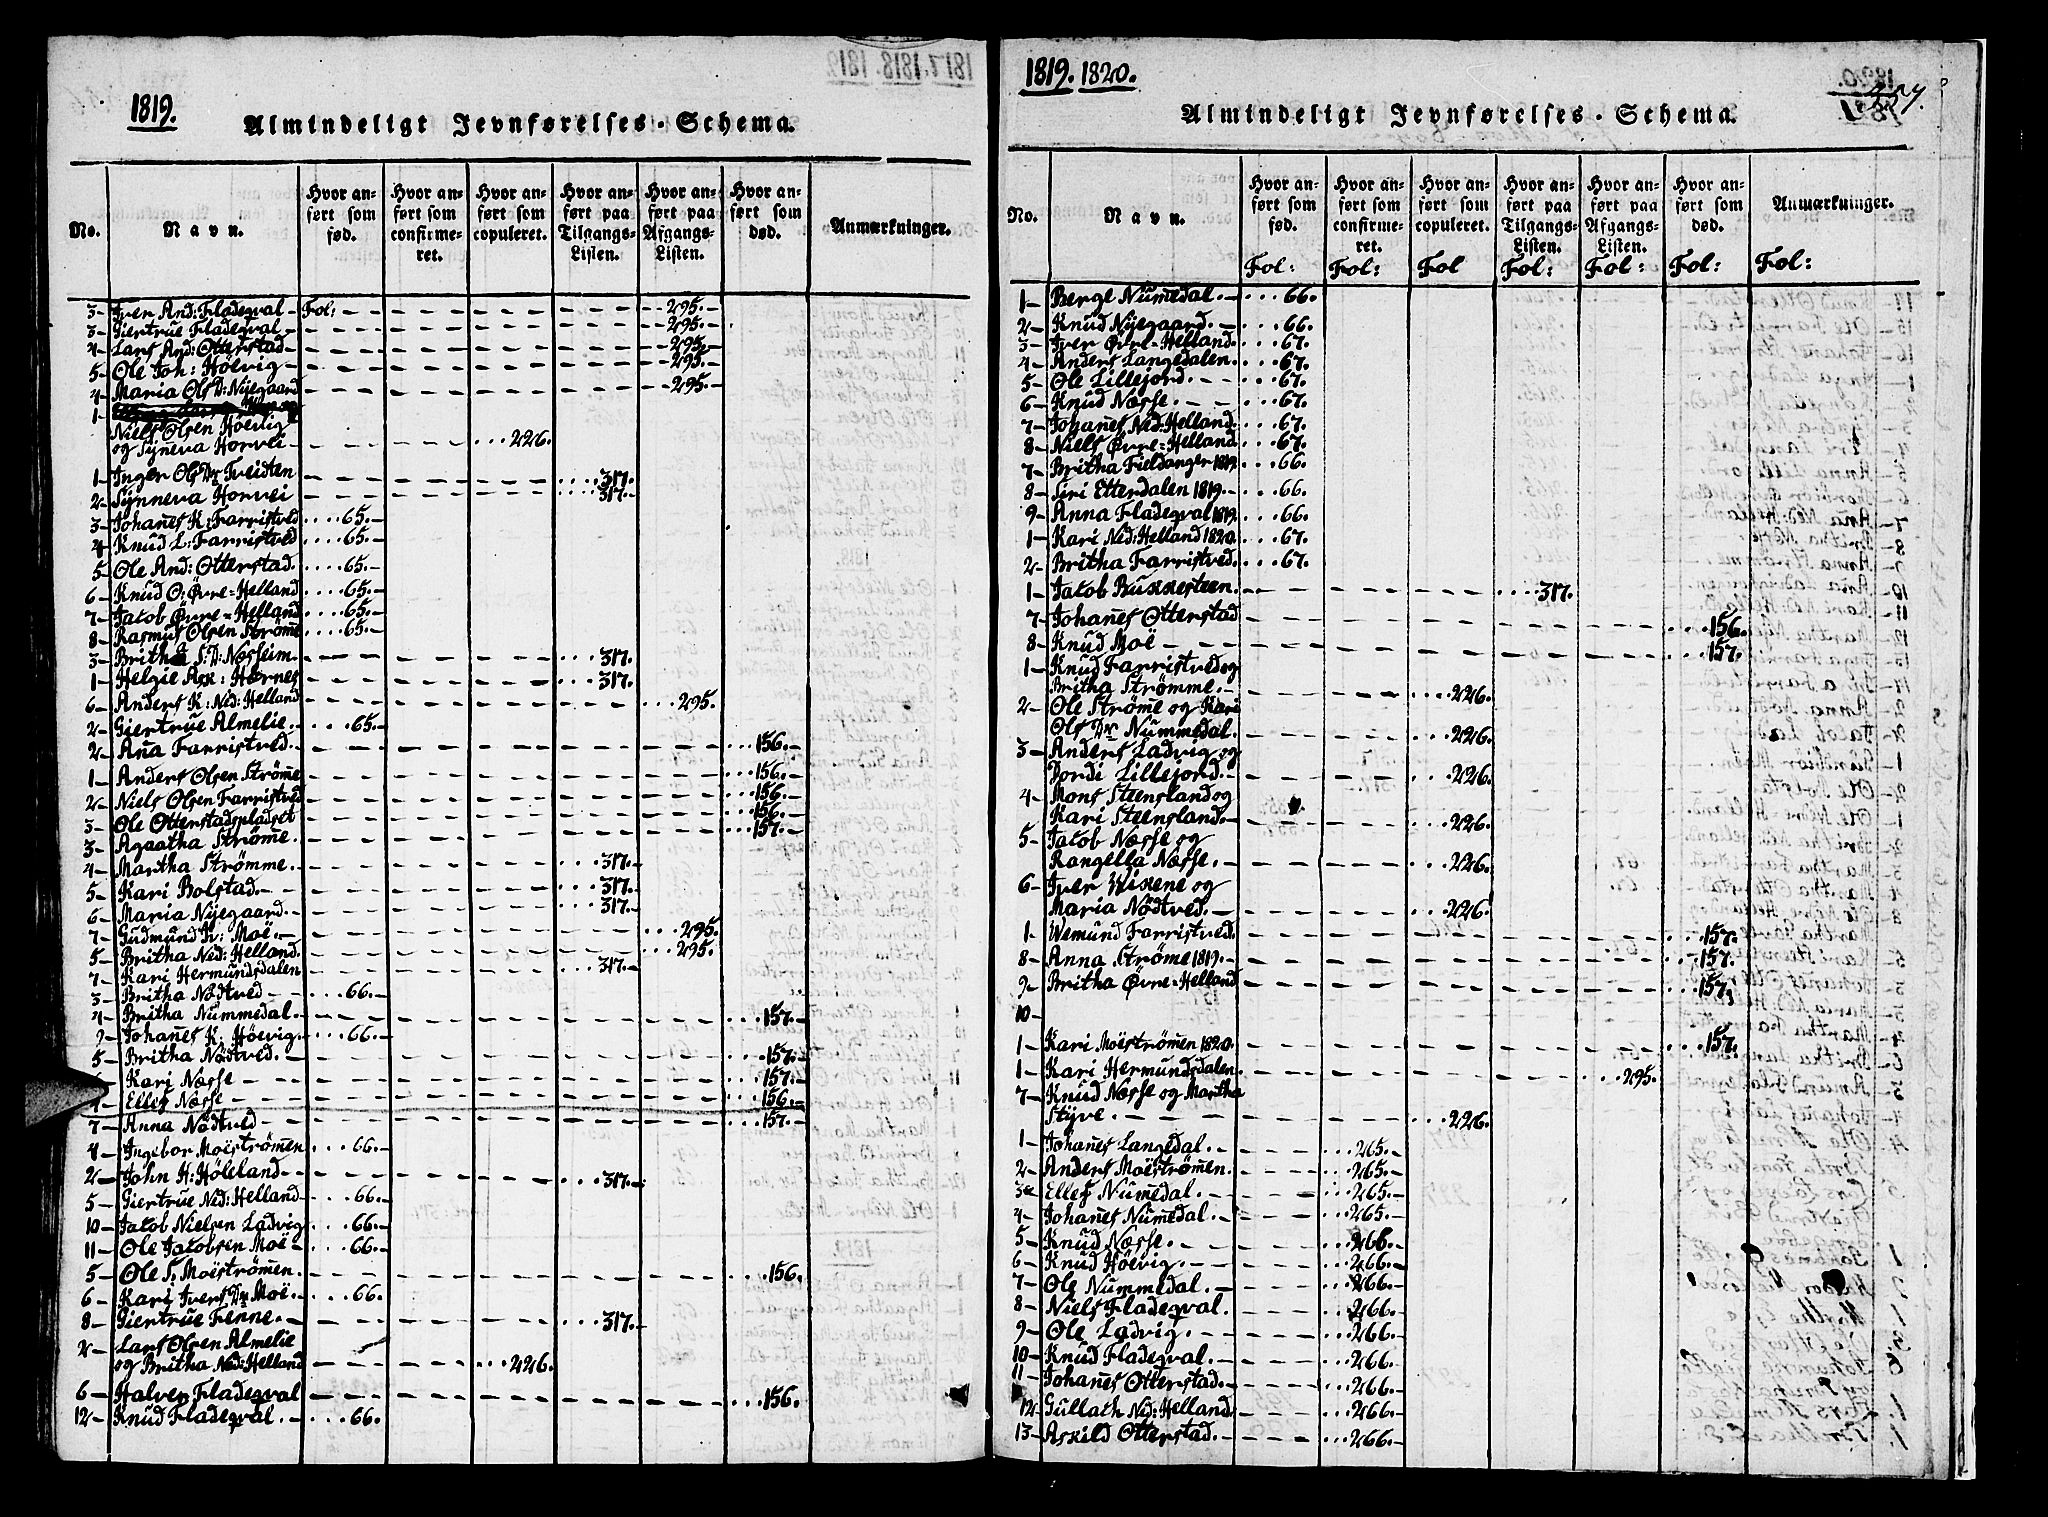 1819.
Almindeligt Jevnførelses-Schema.
No. Navn. Hvor anført som fød. Hvor anført som confirmeret. Hvor anført som copuleret. Hvor anført paa Tilgangs-Listen. Hvor anført paa Afgangs-Listen. Hvor anført som død. Anmærkninger.
3 - Iver And: Fladeqval - Fol: 295.
3 - Giertrue Fladeqval - 295.
4 - Lars And: Otterstad - 295.
5 - Ole Joh: Höevig - 295.
4 - Maria Ols D: Nÿegaard 295.
1 -
Niels Olsen Höevig
og Sÿneva Horvei - 226.
1 - Inger Ols Dr Tveidten 317.
2 - Sÿnneva Horvei 317.
3 - Johañes K: Farristved 65.
4 - Knud L: Farristved 65.
5 - Ole And: Otterstad. 65.
6 - Knud O: Övre=Helland 65.
7 - Jacob Övre=Helland 65.
8 - Rasmus Olsen Ströme 65.
3 - Britha S: D: Nesheim. 317.
1 - Helgie Ask: Hornes 317.
6 - Anders K: Ned: Helland 295.
2 - Giertrue Almelie. 65.
2 - Aña Farristved. 156.
1 - Anders Olsen Ströme 156.
2 - Niels Olsen Farristved 156.
3 - Ole Otterstadspladset 156.
3 - Agaatha Ströme. 157.
4 - Martha Strömme. 317.
5 - Kari Bolstad. 317.
6 - Maria Nÿegaard. 317.
7 - Gudmund Iv: Moë. 295.
5 - Britha Ned: Helland. 295.
7 - Kari Hermundsdalen 317.
3 - Britha Nödtved 66.
4 - Britha Nummedal 157.
9 - Johañes K. Höevig. 66.
5 - Britha Nödtved. 157.
Kari Næsse 157.
Elles Næsse 156.
7 - Anna Nödtved 157.
4 - Ingebor Moëströmen 66.
2 - John H: Höleland 317.
5 - Giertrue Ned: Helland 66.
10 - Jacob Nielsen Ladvig 66.
11 - Ole Jacobsen Moë 66.
5 - Ole S. Moëströmen. 156.
6 - Kari Ivers Dr Moë. 66.
8 - Giertrue Fenne. 317.
2 - Lars Olsen Almelie
og Britha Ned: Helland 226.
6 - Halven Fladeqval 156.
12 - Knud Fladeqval. 66.
1819. 1820.
Almindeligt Jevnførelses-Schema.
No. Navn. Hvor anført som fød. Hvor anført som confirmeret. Hvor anført som copuleret. Hvor anført paa Tilgangs-Listen. Hvor anført paa Afgangs-Listen. Hvor anført som død. Anmærkninger.
Fol: Fol: Fol Fol: Fol: Fol: Fol:
1 - Berge Nümedal. 66.
2 - Knud Nÿegaard. 66.
3 - Iver Övre=Helland. 67.
4 - Anders Langedalen. 67.
5 - Ole Lillejord. 67.
6 - Knud Næsse. 67.
7 - Johañes Ned: Helland. 67.
8 - Niels Övre=Helland 67.
7 - Britha Fieldanger 1819. 66.
8 - Siri Etterdalen 1819. 66.
9 - Anna Fladeqval 1819. 66.
1 - Kari Ned: Helland 1820. 67.
2 - Britha Farristved. 67.
1 - Jacob Bukkesteen. 317.
7 - Johañes Otterstad 156.
8 - Knud Moë 157.
1 - Knud Farristved og
Britha Strömme. 226.
2 - Ole Ströme og Kari
Ols Dr Nummedal. 226.
3 - Anders Ladvig og
Jordi Lillejord. 226.
4 - Mons Steensland og
Kari Steensland. 226.
5 - Jacob Næsse og
Rangella Næsse. 226.
6 - Iver Wikene og
Maria Nödtved. 226.
1 - Wemund Farristved. 157.
8 - Anna Ströme 1819. 157.
9 - Britha Övre=Helland 157.
10 -
1 - Kari Moëströmen 1820. 157.
1 - Kari Hermundsdalen. 295.
7 - Knud Næsse og Martha
Stÿve. 226.
1 - Johañes Langedal. 265.
2 - Anders Moëströmen. 265.
3 Elles Nümedal. 265.
4 - Johañes Nümedal. 265.
5 - Knud Næsse. 266.
6 - Knud Höevig. 266.
7 - Ole Nummedal. 266.
8 - Niels Fladeqval. 266.
9 - Ole Ladvig. 266.
10 - Knud Fladeqval. 266.
11 - Johañes Otterstad. 266.
12 - Gullach Ned: Helland. 266.
13 - Askild Otterstad. 266.